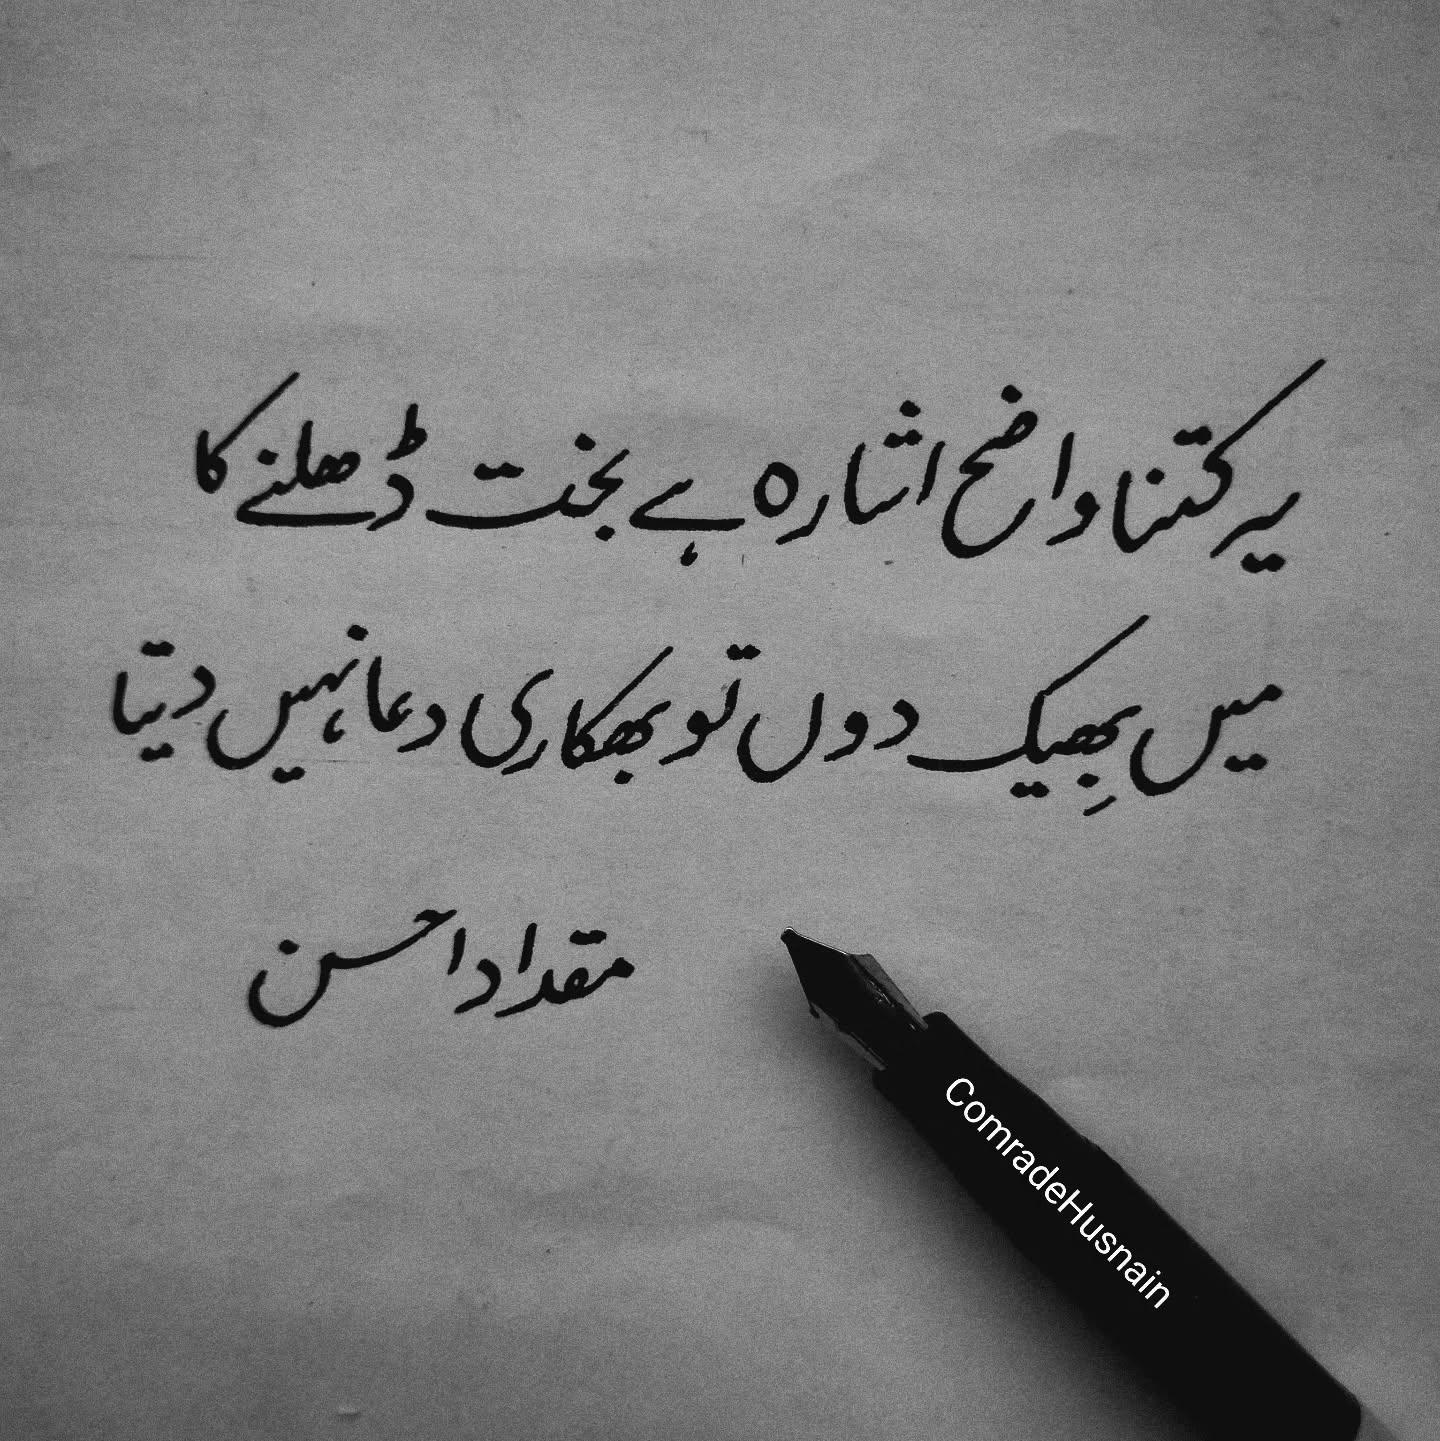 یہ کتنا واضح اشارہ ہے بخت ڈھلنے کا
میں بِھیک دوں تو بھکاری دعا نہیں دیتا
مقداد احسن
ComradeHusnain